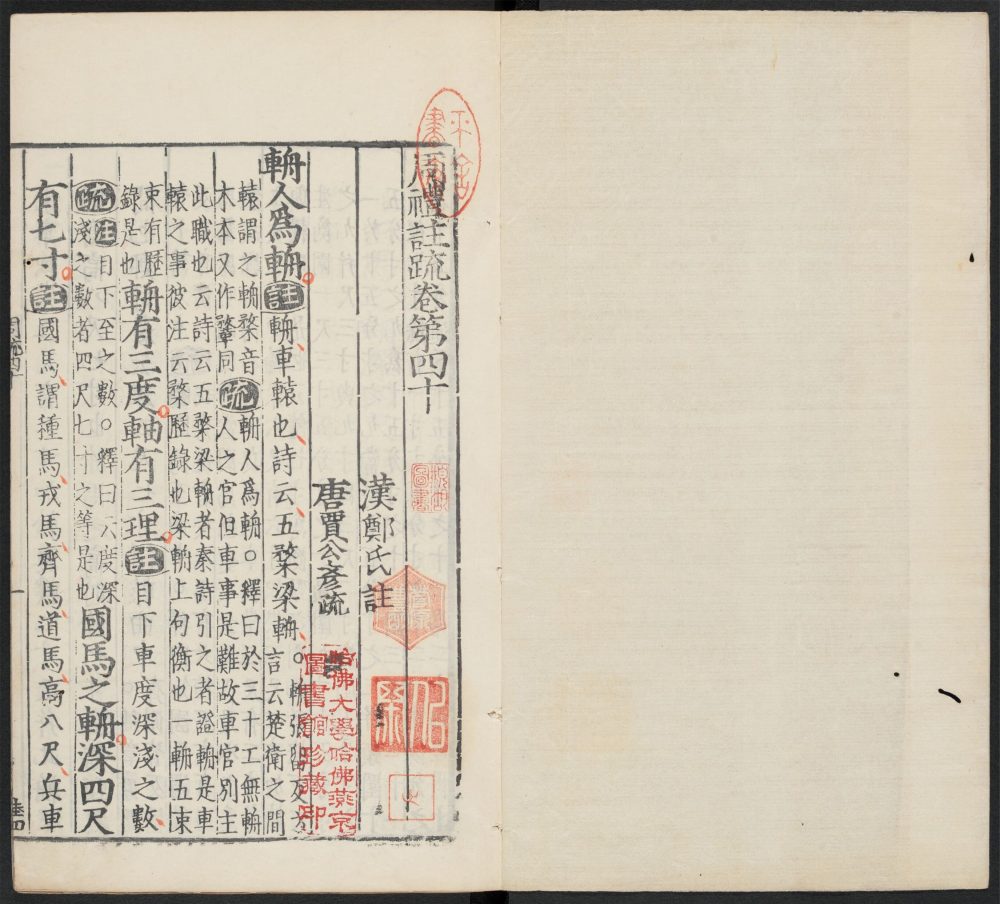 周禮註疏卷第四十
漢鄭氏註
唐賈公彥疏
輈人爲輈註輈車轅也詩云五楘梁輈○輈張留反方
言云楚衛之間
轅謂之輈楘音
木本又作鞪同疏輈人爲輈○釋曰於三十工無輈
人之官但車事是難故車官別主
此職也云詩云五楘梁輈者秦詩引之者證輈是車
轅之事彼注云楘歷錄也梁輈上句衡也一輈五束
束有歷
錄是也輈有三度軸有三理註目下車度深淺之數
疏註目下至之數○釋曰云度深
淺之數者四尺七寸之等是也國馬之輈深四尺
有七寸註國馬謂種馬戎馬齊馬道馬高八尺兵車
哈佛大學哈佛燕京
圖書館珍藏印